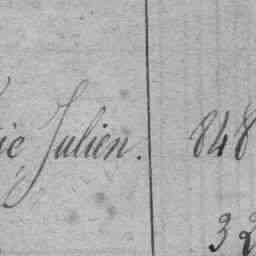 Julien. 848
32